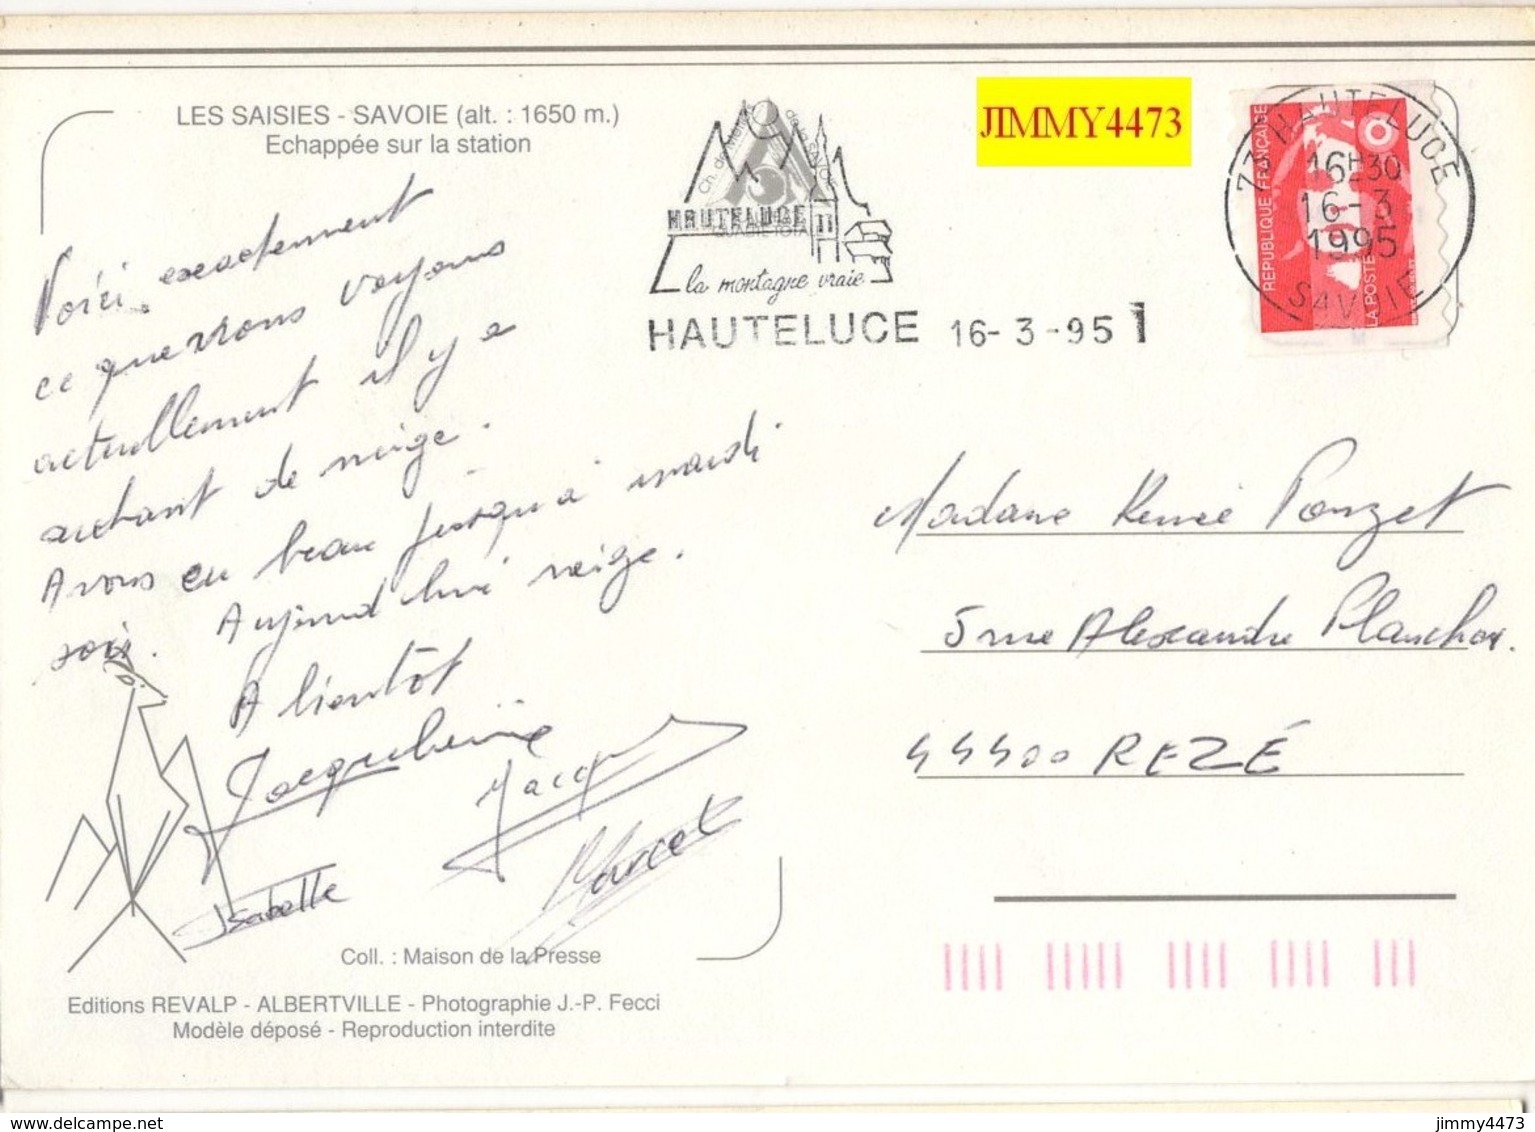 LES SAISIES - SAVOIE (alt. : 1650 m.)
Echappée sur la station
Voici exactement
ce que nous voyons
actuellement il y a
autant de neige.
Avons eu beau jusqu'à mardi
soir. Aujourd'hui neige.
A bientôt
Jacqueline
Jacq
Isabelle
Marcel
Coll. : Maison de la Presse
Editions REVALP - ALBERTVILLE - Photographie J.-P. Fecci
Modèle déposé - Reproduction interdite
HAUTELUCE
la montagne vraie
HAUTELUCE 16-3-95
JIMMY4473
73 HAUTELUCE
16H30
16-3
1995
SAVOIE
REPUBLIQUE FRANÇAISE
LA POSTE
Madame Renée Ponzet
5 rue Alexandre Planchon.
44400 REZÉ
delcampe.net
jimmy4473